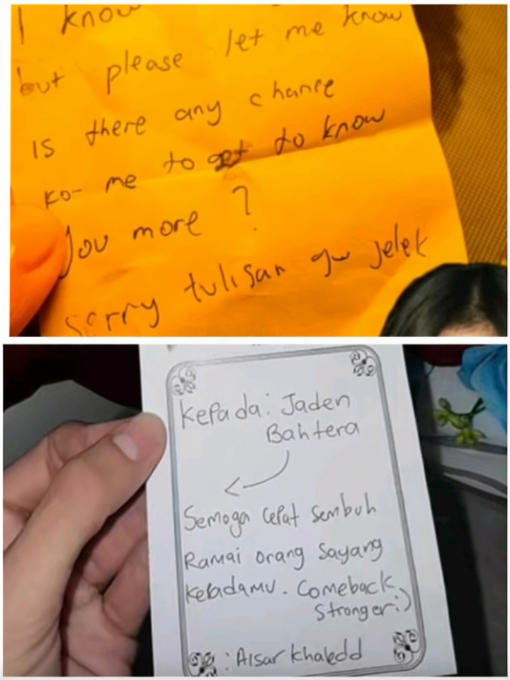 I know
but please let me know
is there any chance
me to get to know
you more ?
sorry tulisan gw jelek
Kepada: Jaden
Bahtera
Semoga cepat sembuh
Ramai orang sayang
kepadamu. Comeback
Stronger:)
: Aisar khaledd